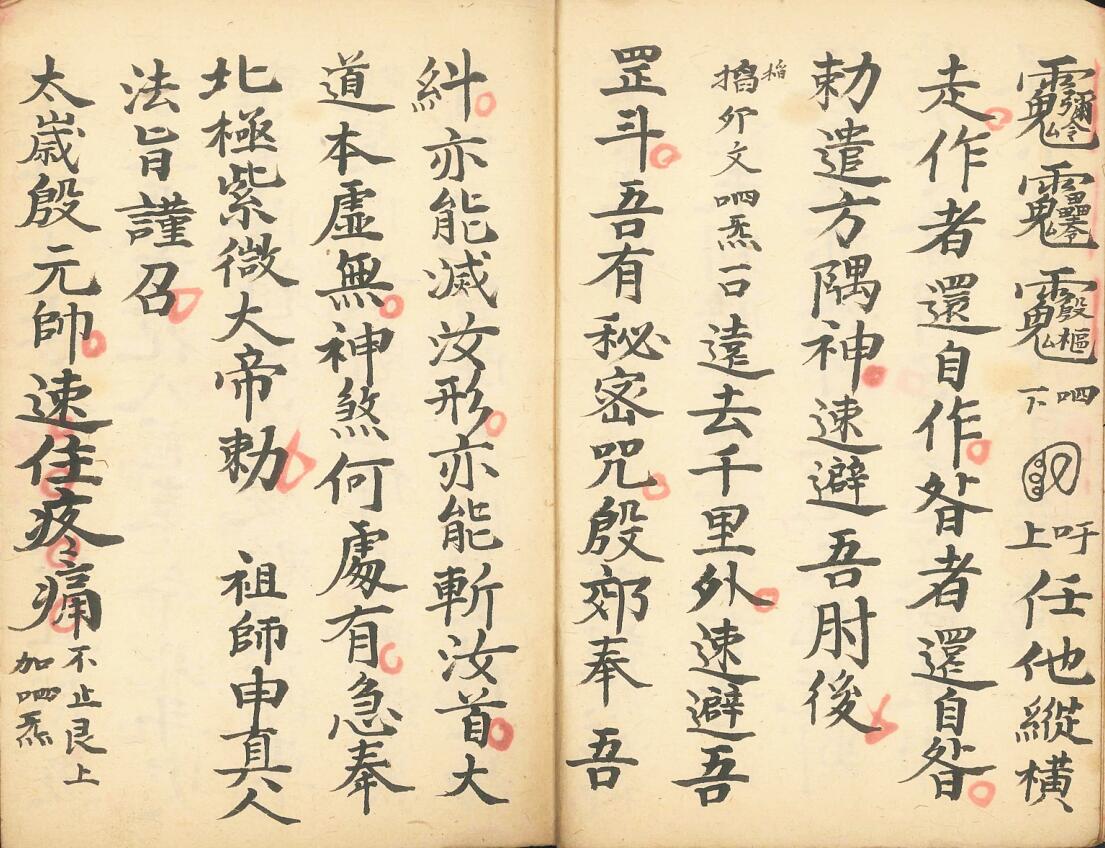 呬下 吁上 任他縱橫
走作者還自作咎者還自咎
勅遣方隅神速避吾肘後
搯卯文呬炁一口遠去千里外速避吾
罡斗吾有秘密咒殷郊奉吾
糾亦能滅汝形亦能斬汝首大
道本虛無神煞何處有急奉
北極紫微大帝勅 祖師申真人
法旨謹召
太歲殷元帥速住疼痛 不止艮上加呬炁